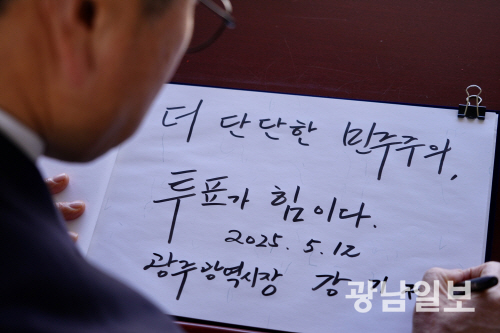 더 단단한 민주주의,
투표가 힘이다.
2025. 5. 12
광주광역시장 강
광남일보